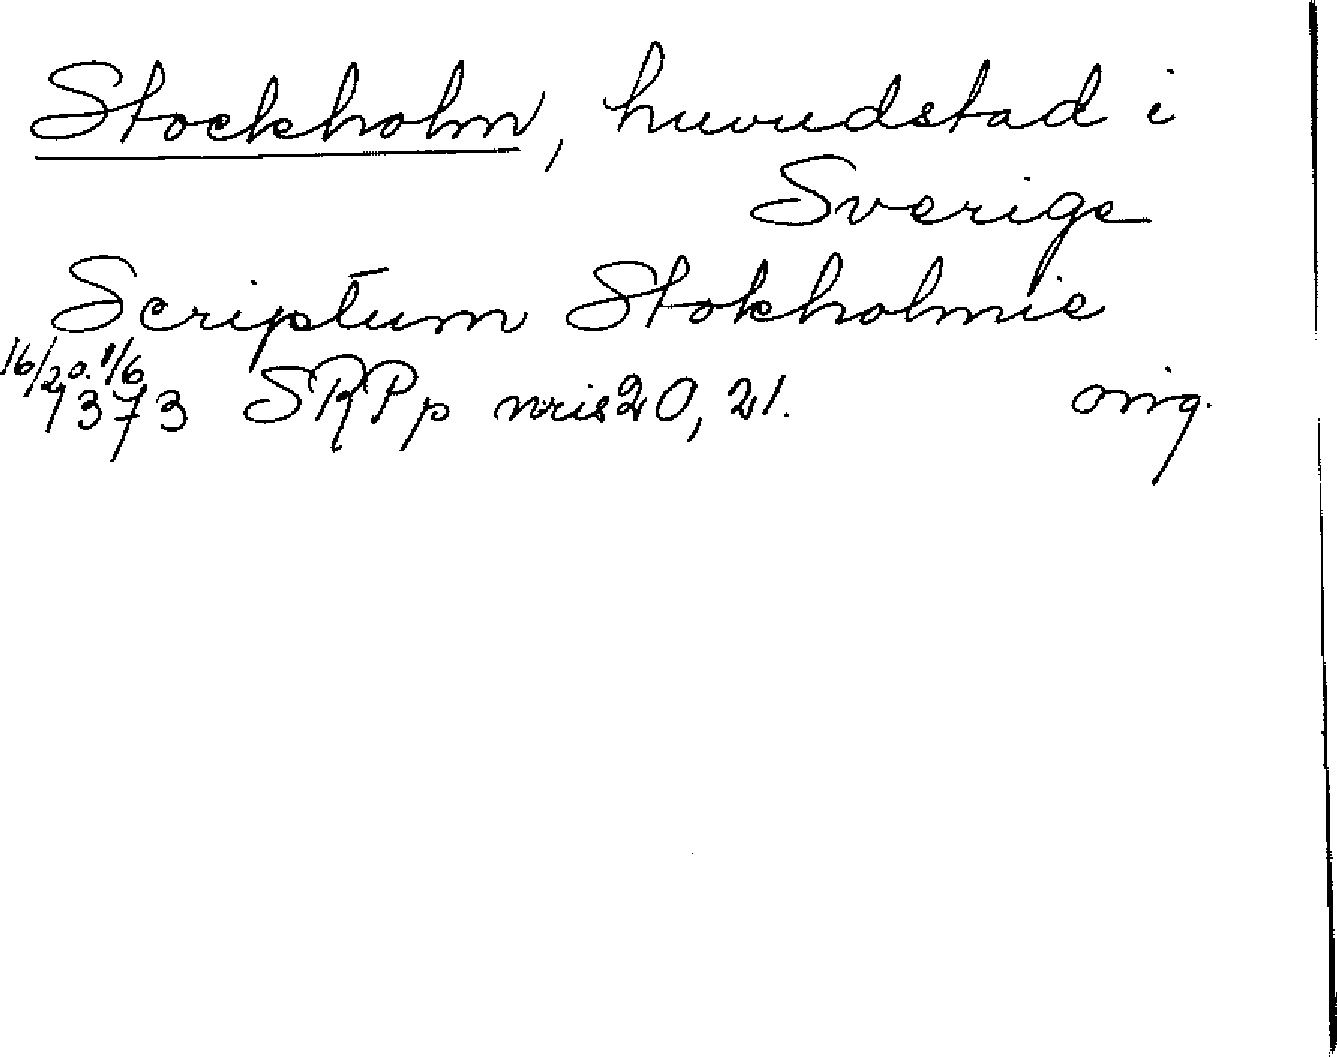 Stockholm, huvudstad i
Sverige
Scriptum Stokholmie
16/2 o. 1/6
1373 SRPp nris 20, 21. orig.